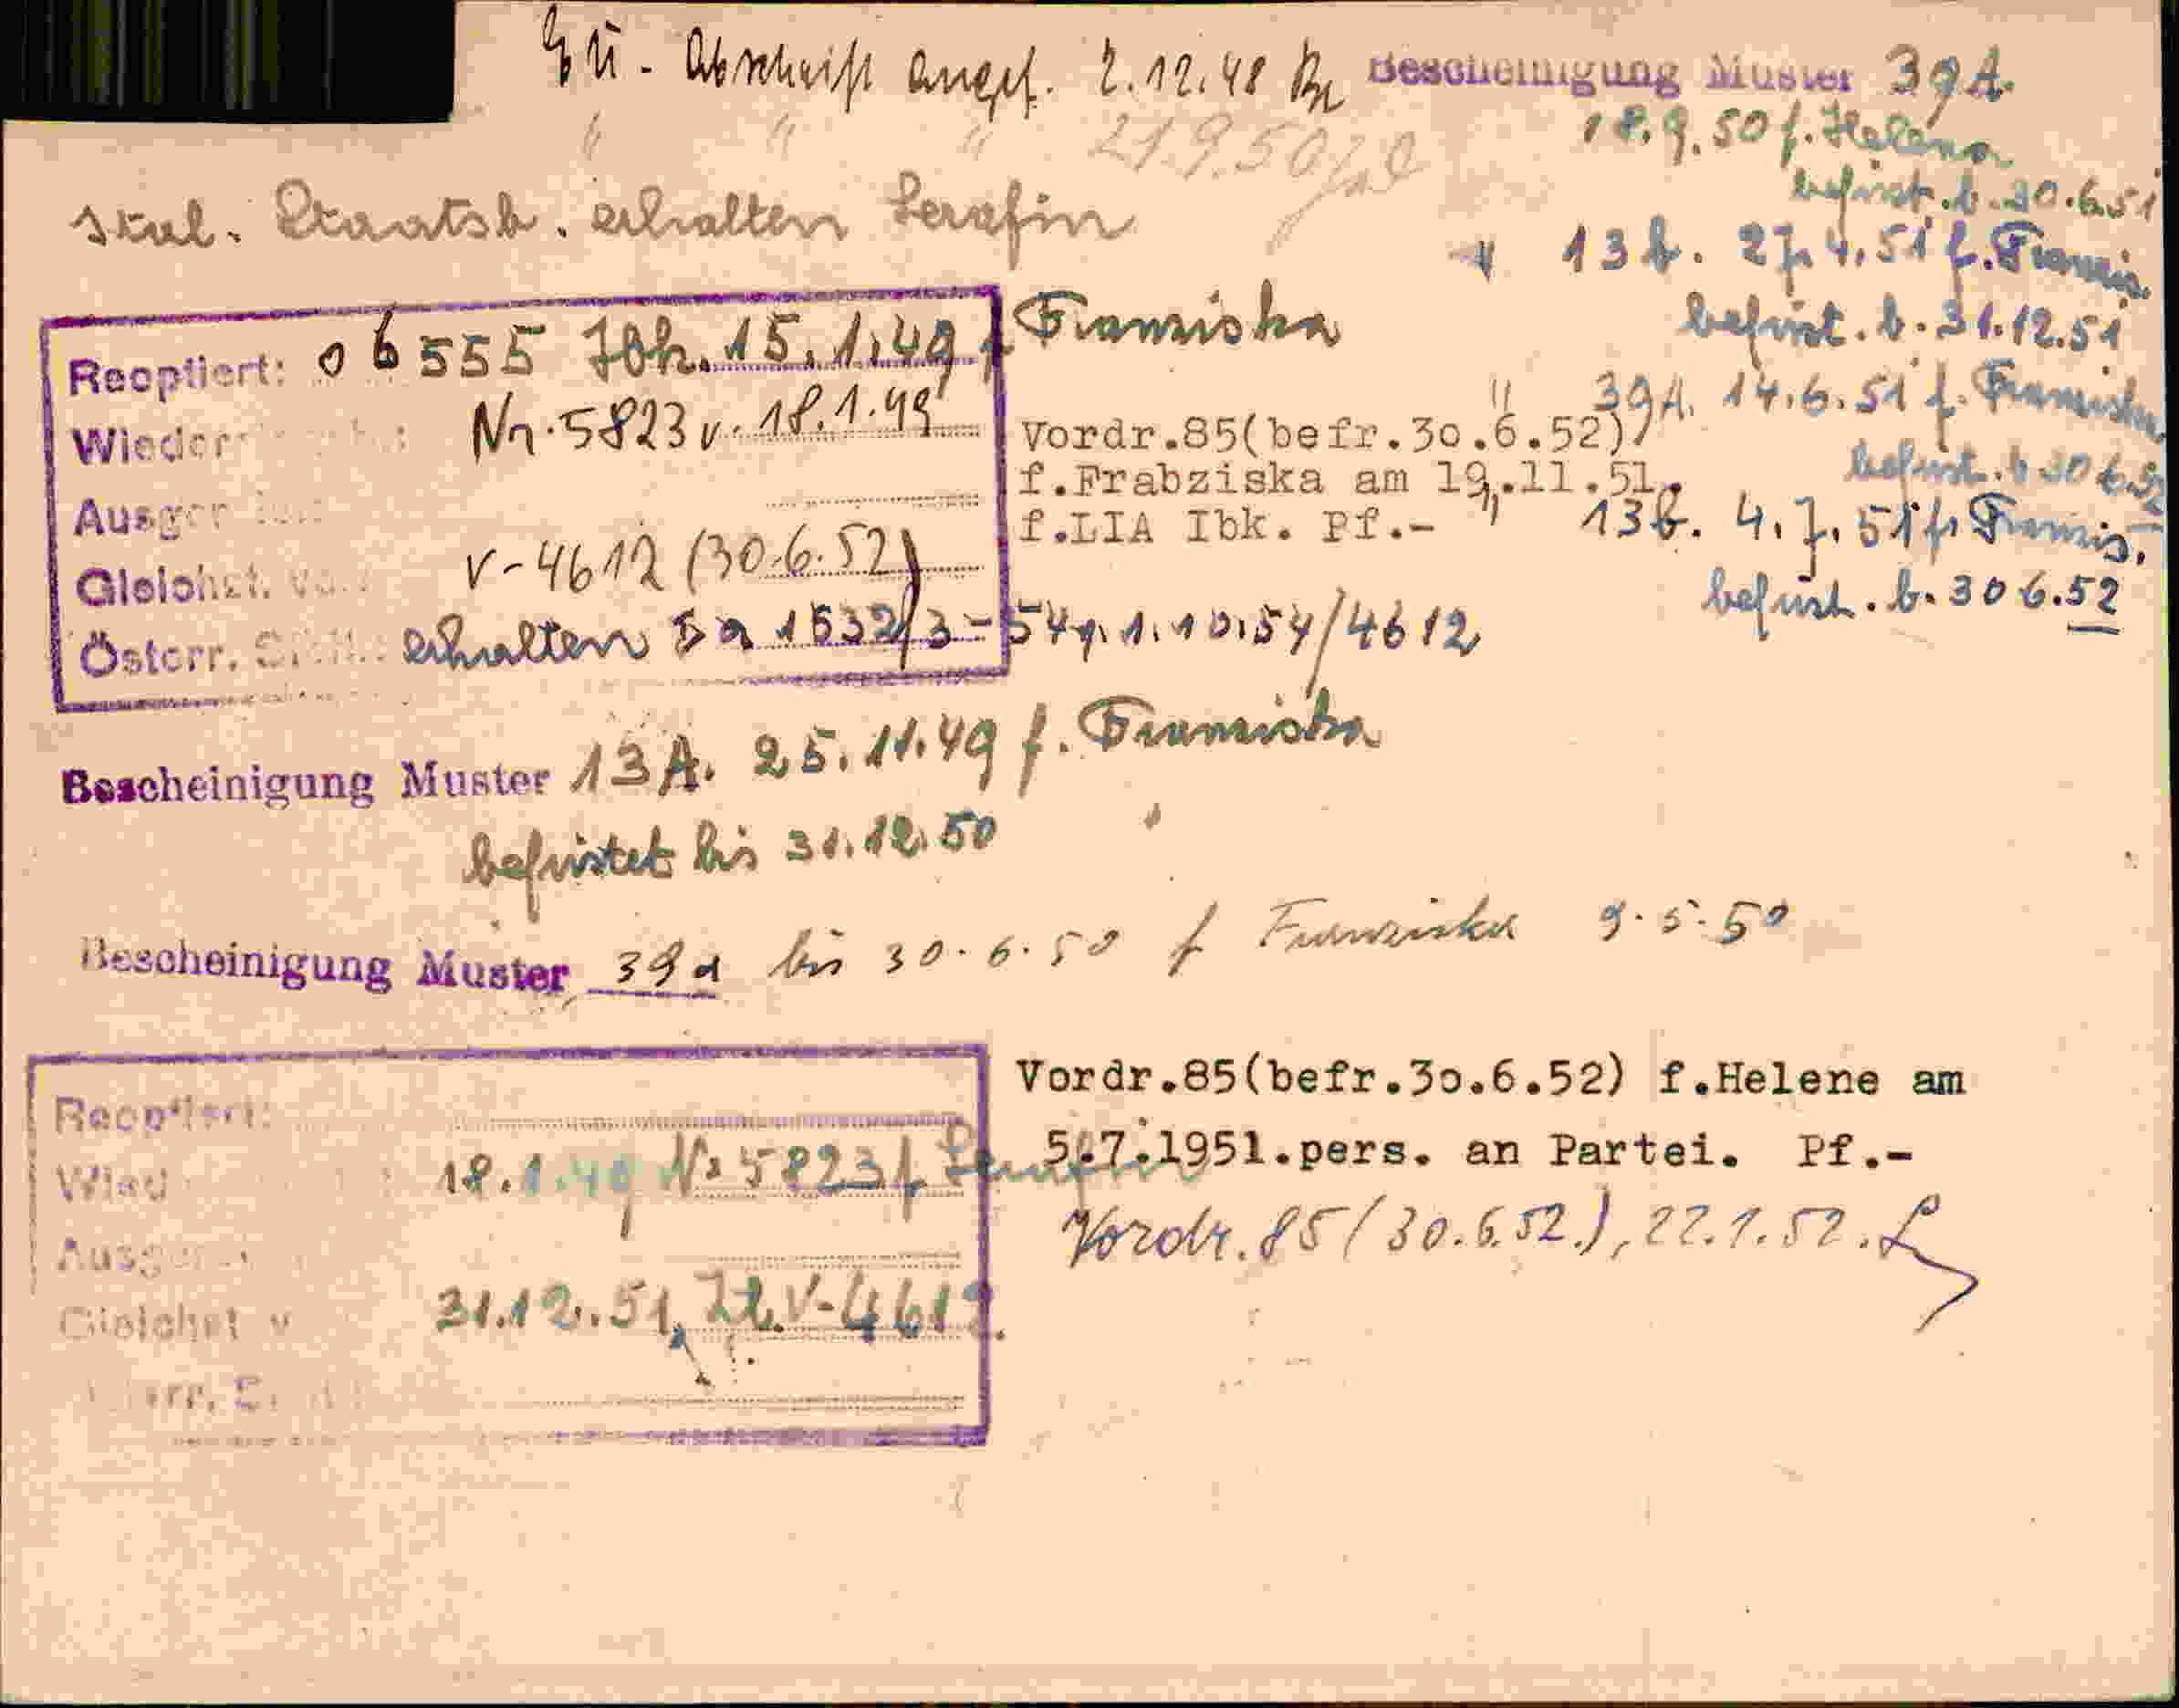 Abschrift angef. 2.12.48
" " " 21.9.50
ital. Staatsb. erhalten Serafin
Bescheinigung Muster 39A.
18.9.50 f. Helena
befrist. b. 30.6.51
" 13b. 27.4.51 f. Franzis.
befrist. b. 31.12.51
" 39A. 14.6.51 f. Franziska
befrist. b 30 6.52
" 13b. 4.7.51 f. Franzis.
befrist. b. 30 6.52
Reoptiert: 06555 Ibk. 15.1.49 f. Franziska
Wieder Nr. 5823 v. 18.1.49
Ausge
Gleichst. V-4612 (30.6.52)
Österr. erhalten 1532/3-54 v. 1.10.54/4612
Vordr.85(befr.30.6.52)
f.Frabziska am 19.11.51.
f.LIA Ibk. Pf.-
Bescheinigung Muster 13A. 25.11.49 f. Franziska
befristet bis 31.12.50
Bescheinigung Muster 39a bis 30.6.50 f Franziska 9.5.50
Reoptiert:
Wied 18.1.49 Nr 5823 f.
Ausge
Gleichst v 31.12.51, Zl. V-4612.
Vordr.85(befr.30.6.52) f.Helene am
5.7.1951.pers. an Partei. Pf.-
Vordr. 85 (30.6.52), 22.1.52.